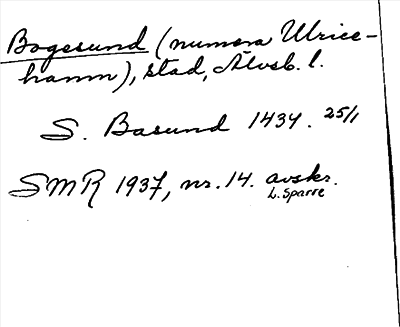 Bogesund (numera Ulrice-
hamn), stad, Älvsb. l.
S. Basund 1434. 25/1
SMR 1937, nr. 14. avskr.
L. Sparre